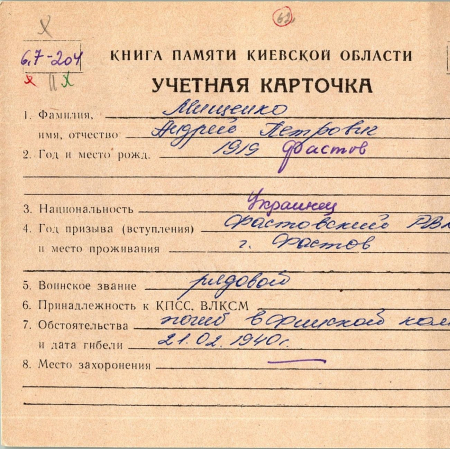 62
6,7-204
х П х
КНИГА ПАМЯТИ КИЕВСКОЙ ОБЛАСТИ
УЧЕТНАЯ КАРТОЧКА
1. Фамилия, Мищенко
имя, отчество Андрей Петрович
2. Год и место рожд. 1919 Фастов
3. Национальность Украинец
4. Год призыва (вступления) Фастовский РВ
и место проживания г. Фастов
5. Воинское звание рядовой
6. Принадлежность к КПСС, ВЛКСМ
7. Обстоятельства погиб в финской
и дата гибели 21.02.1940г.
8. Место захоронения —